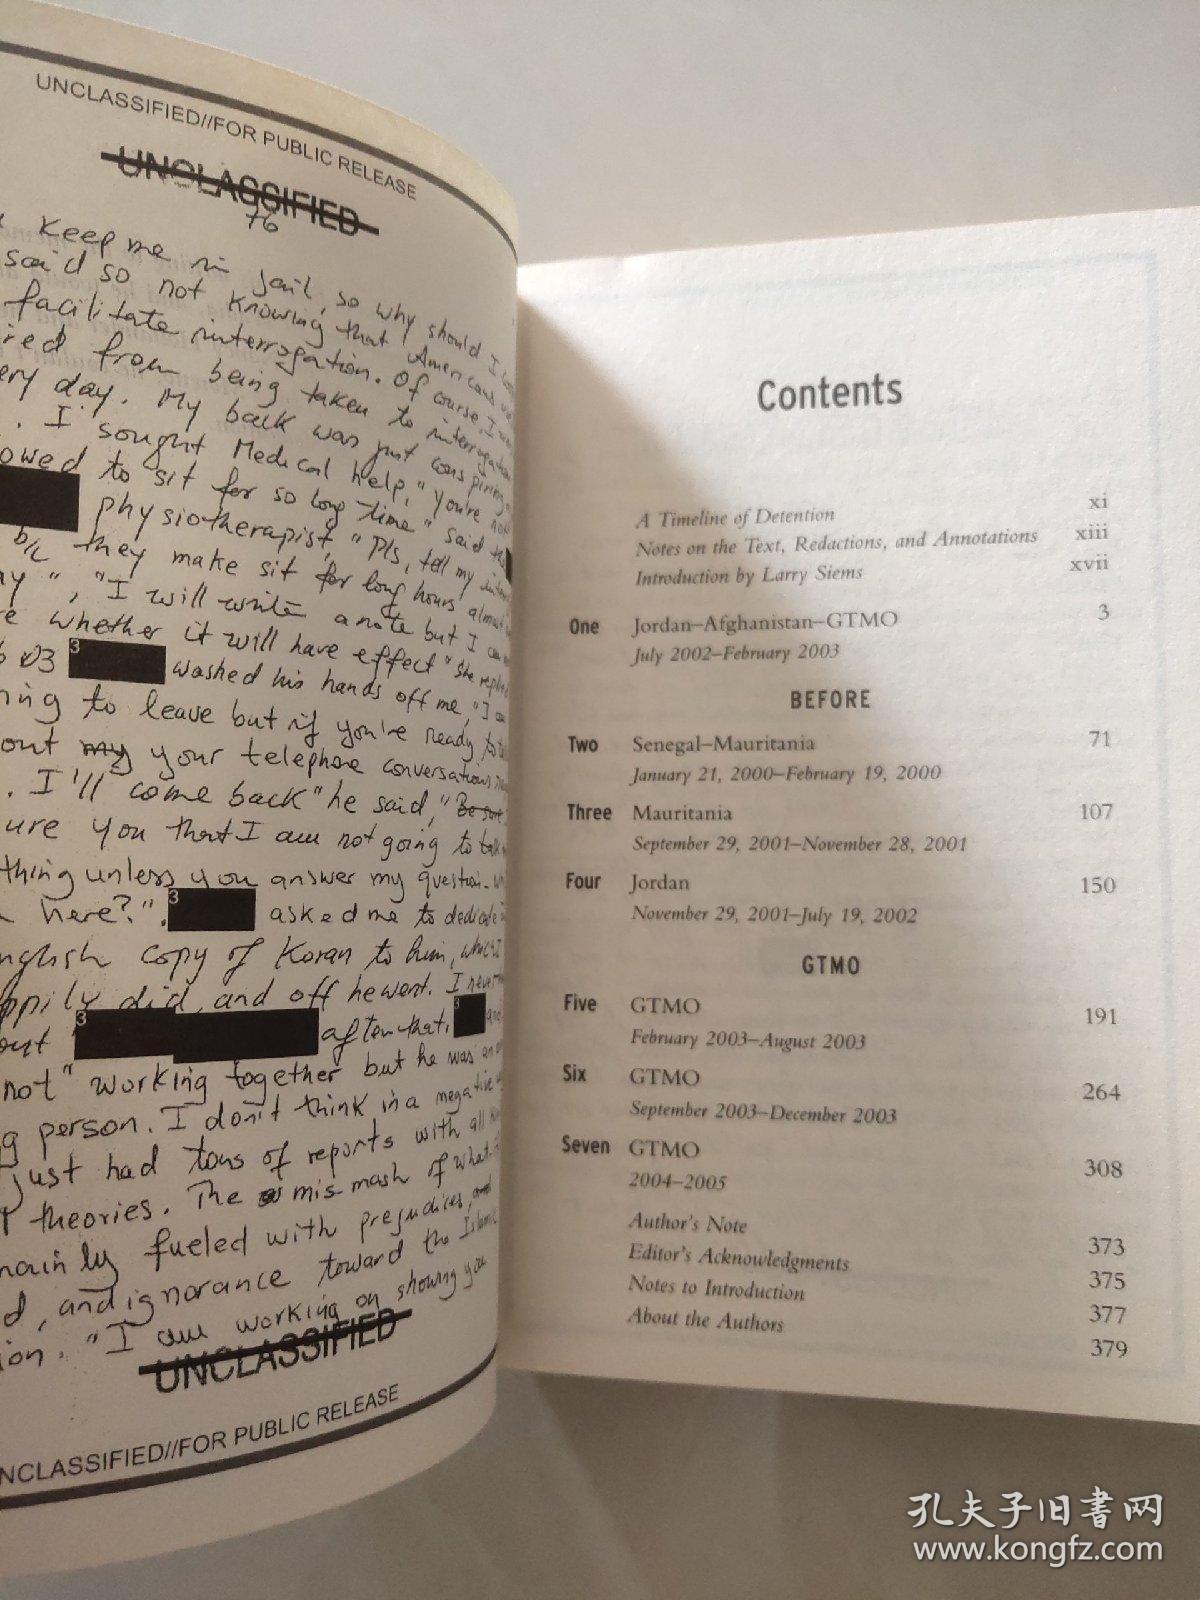 UNCLASSIFIED//FOR PUBLIC RELEASE
UNCLASSIFIED
76
Keep me in jail, so why should I
said so not knowing that Americans
facilitate interrogation. Of course, I
from being taken to interrogation
day. My back was just conspiring
I sought Medical help, "You're not
to sit for so long time" said
physiotherapist, "Pls, tell my
b/c they make sit for long hours almost
", "I will write a note but I
whether it will have effect" she replied
03 3 washed his hands off me, "I
to leave but if you're ready to
my your telephone conversations
. I'll come back" he said, "Be sure
you that I am not going to talk
thing unless you answer my question.
here?". 3 asked me to dedicate
copy of Koran to him, which I
did, and off he went. I never
3 after that, 3 and
not" working together but he was an
person. I don't think in a negative
just had tons of reports with all
theories. The mis-mash of what
fueled with prejudices, and
, and ignorance toward the Islamic
. "I am working on showing you
UNCLASSIFIED
NCLASSIFIED//FOR PUBLIC RELEASE
Contents
A Timeline of Detention xi
Notes on the Text, Redactions, and Annotations xiii
Introduction by Larry Siems xvii
One Jordan–Afghanistan–GTMO 3
July 2002–February 2003
BEFORE
Two Senegal–Mauritania 71
January 21, 2000–February 19, 2000
Three Mauritania 107
September 29, 2001–November 28, 2001
Four Jordan 150
November 29, 2001–July 19, 2002
GTMO
Five GTMO 191
February 2003–August 2003
Six GTMO 264
September 2003–December 2003
Seven GTMO 308
2004–2005
Author's Note 373
Editor's Acknowledgments 375
Notes to Introduction 377
About the Authors 379
孔夫子旧书网
www.kongfz.com